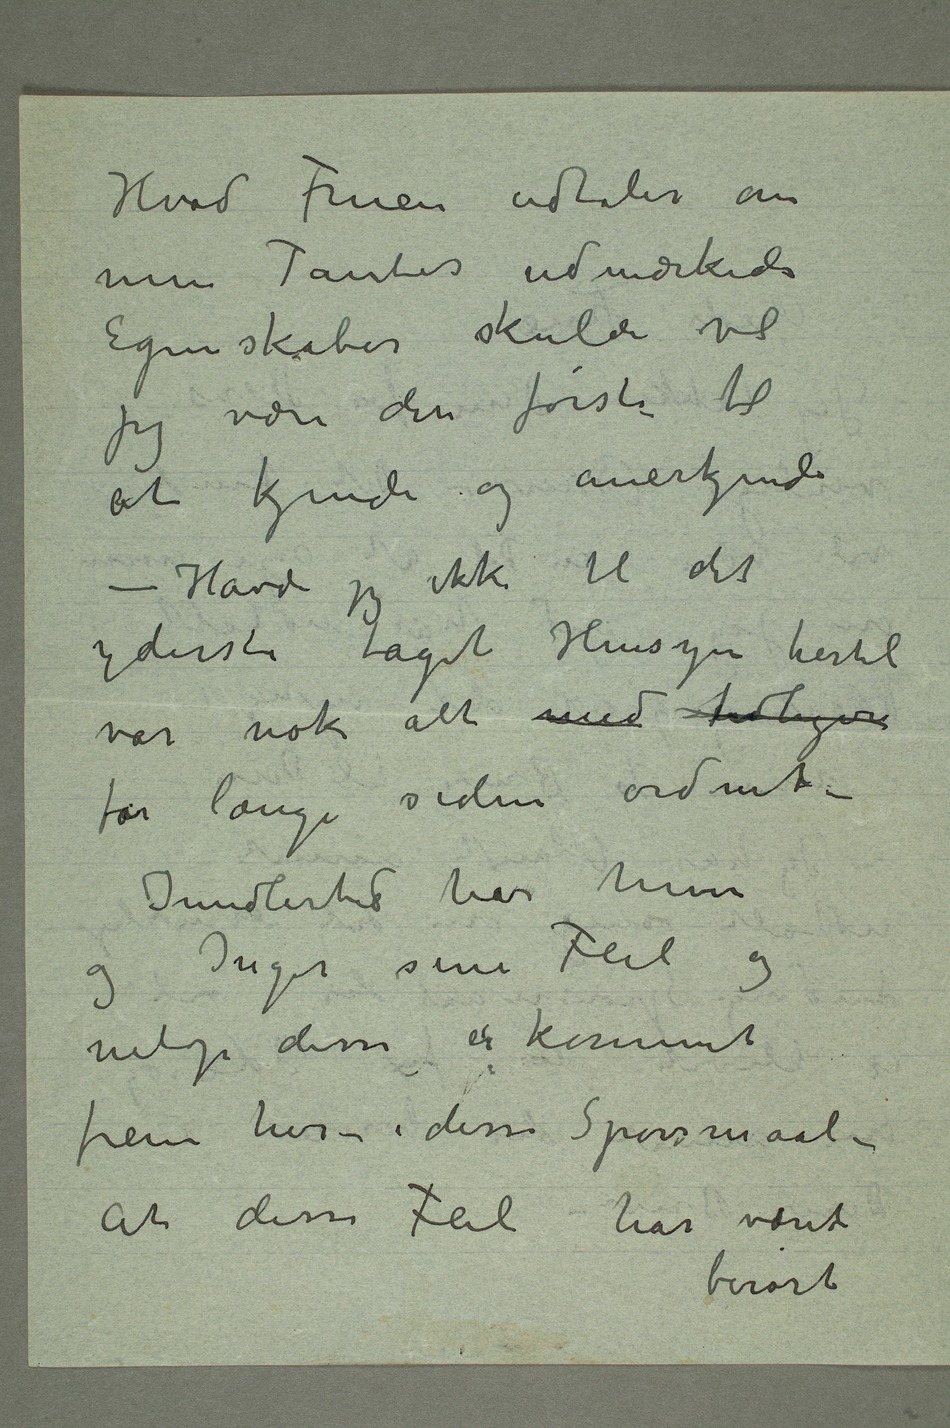 Hvad Fruen udtaler om
min Tantes udmærkede
Egenskaber skulde vel
jeg være den første til
at kjende og anerkjende
– Havde jeg ikke til det
yderste taget Hensyn hertil
var nok alt med tidligere
for længe siden ordnet –
Imidlertid har hun
og Inger sine Feil og
netop disse er kommet
frem her – i disse Spørsmaal –
At disse Feil har været
berørt